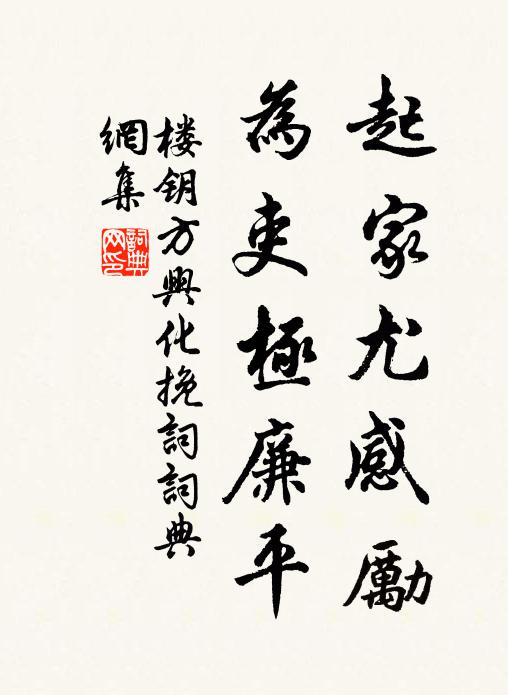 起家尤感勵
為吏極廉平
楼钥方興化挽詞詞典
網集
詞典
网印